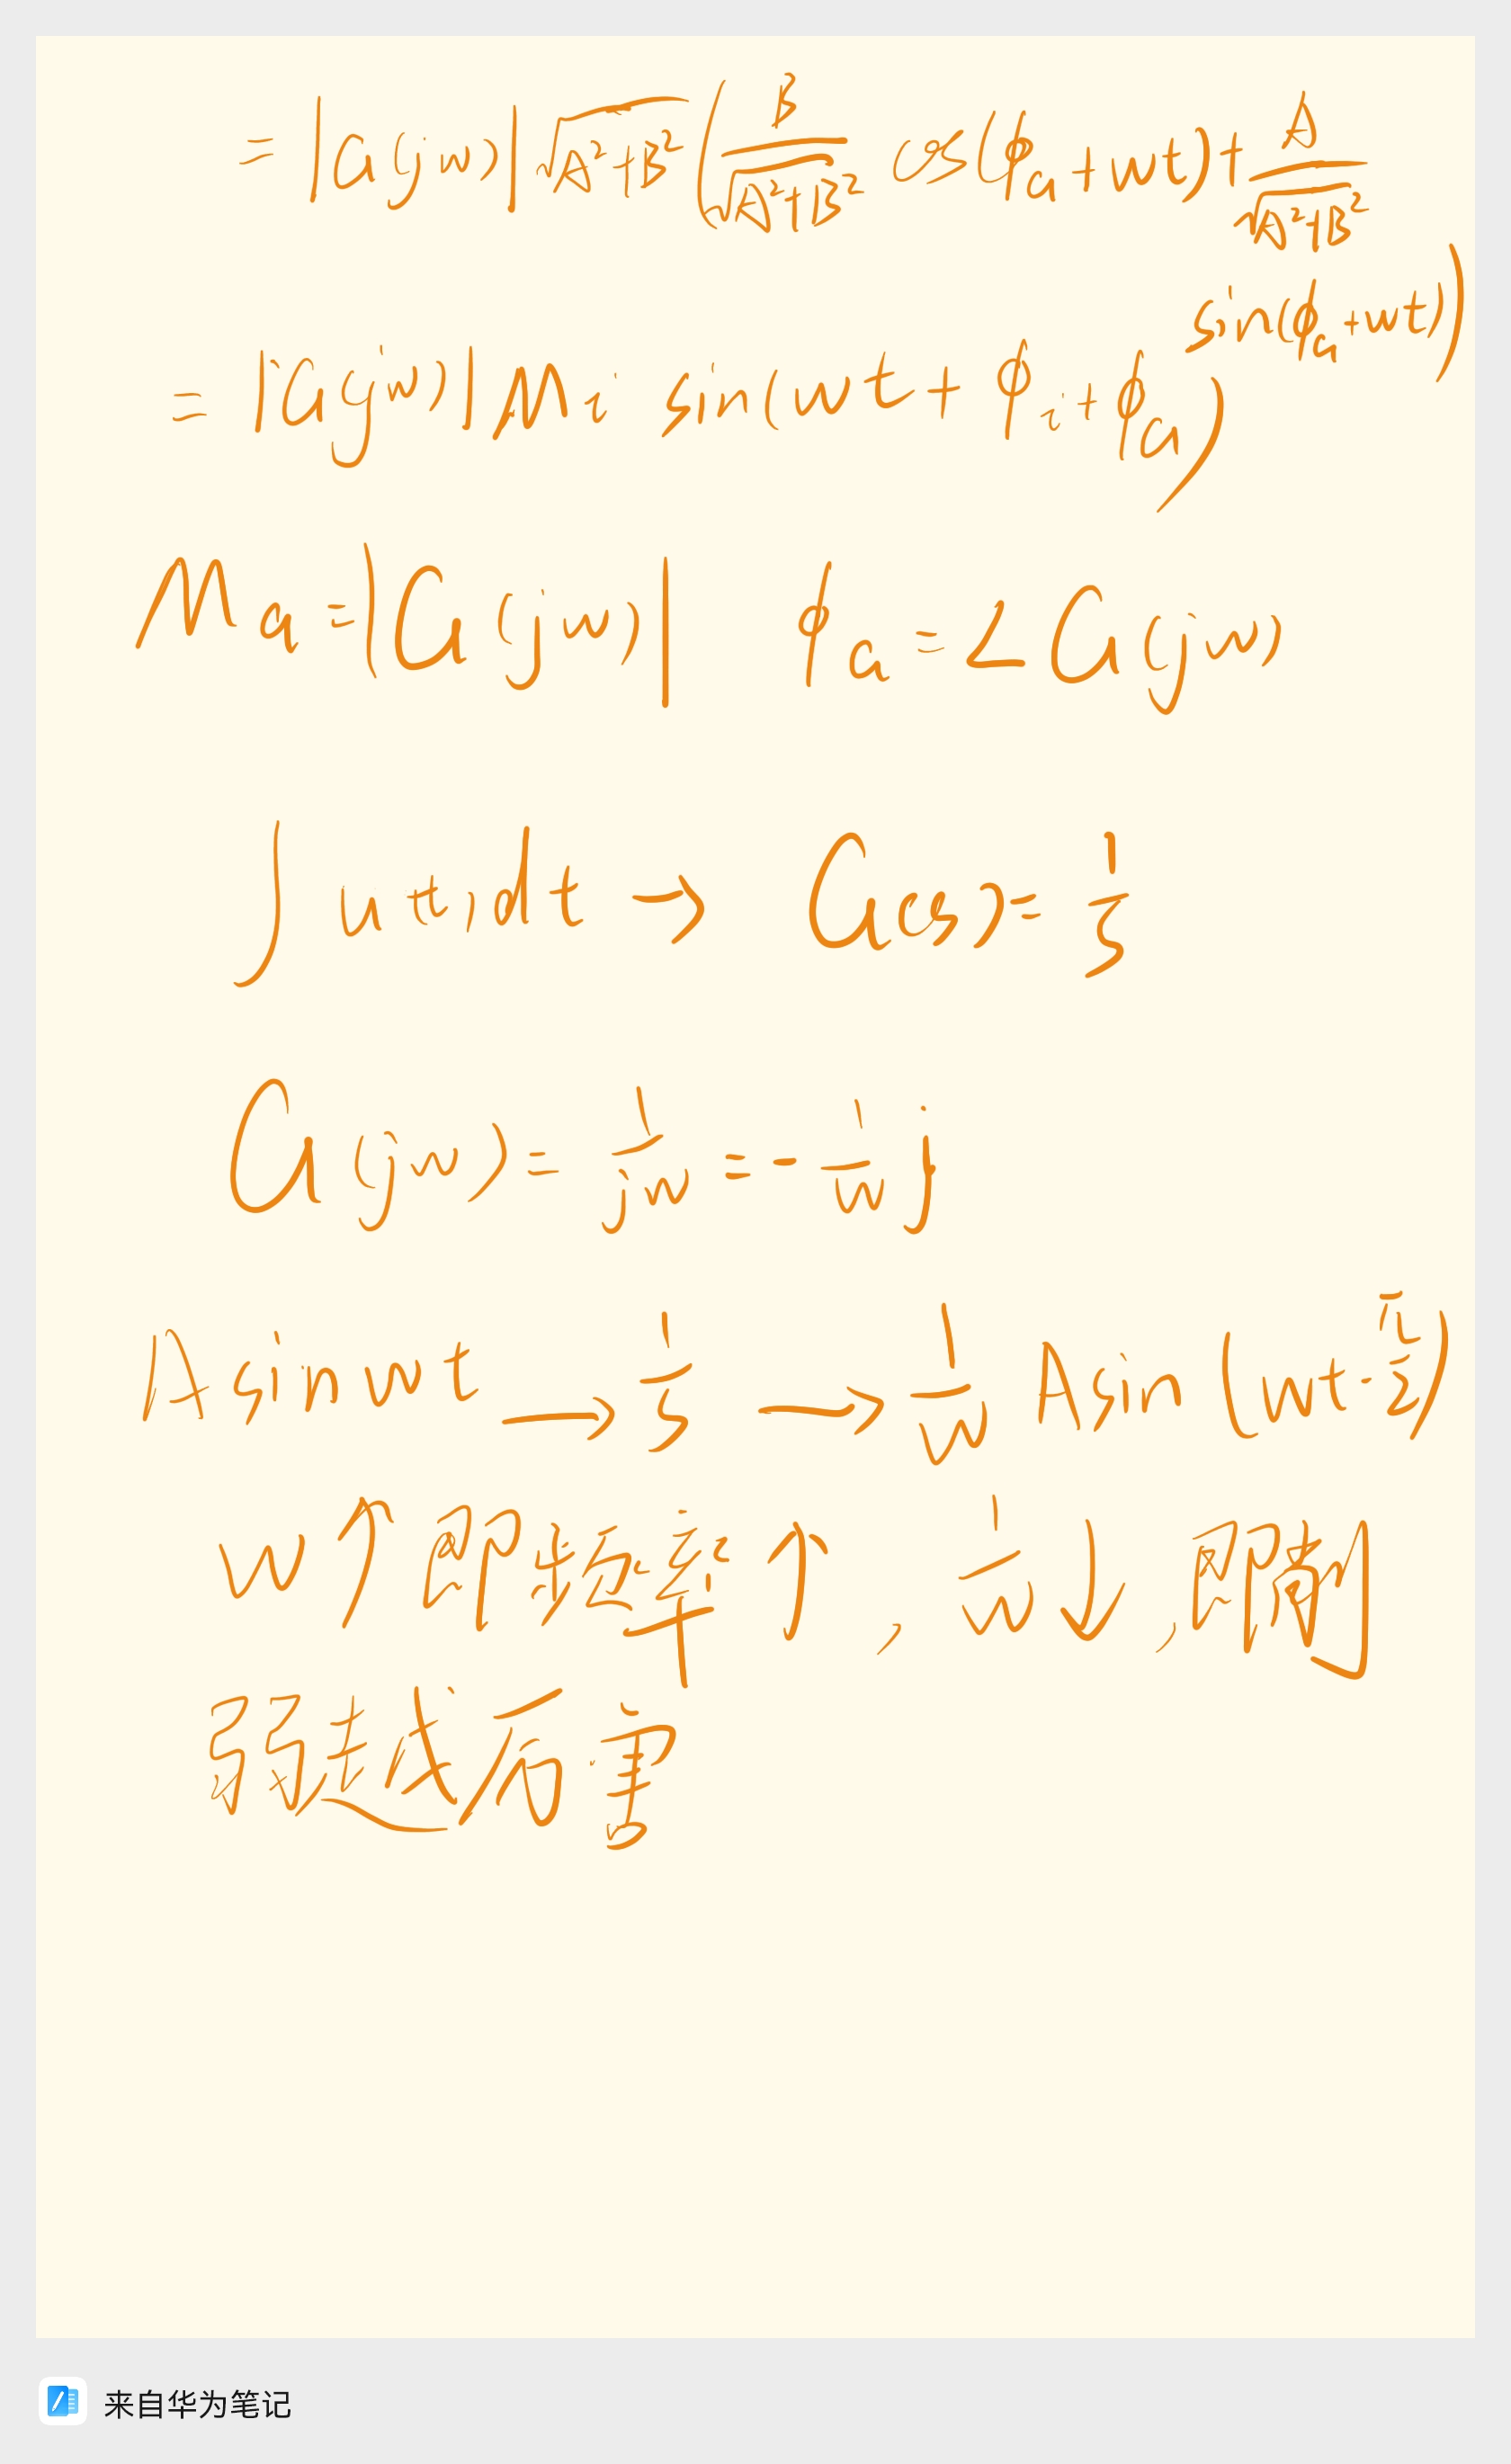 = |G(jw)| √(A²+B²) (B/√(A²+B²) cos(ϕ_G+wt) + A/√(A²+B²) sin(ϕ_G+wt))
= |G(jw)| M_i sin(wt+ϕ_i+ϕ_G)
M_G = |G(jw)| ϕ_G = ∠G(jw)
∫ u(t) dt → G(s) = 1/s
G(jw) = 1/(jw) = -1/w j
A sin wt → 1/s → 1/w A sin(wt - π/2)
w↑即频率↑, 1/w ↓, 即削
弱越厉害
来自华为笔记